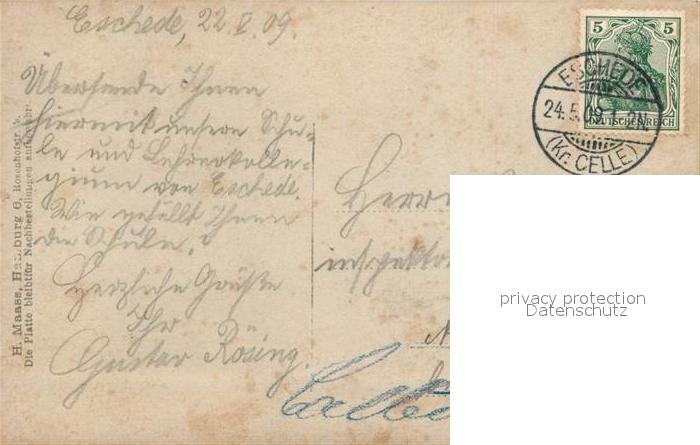 Eschede, 22. V. 09.
Übersende Ihnen
hiermit unsere Schu-
le und Lehrerkolle-
gium von Eschede.
Wie gefällt Ihnen
die Schule?
Herzliche Grüße
Ihr
Gustav Rösing.
H. Maass, Hamburg 6, Rosenhofstr.
Die Platte bleibt für Nachbestellungen aufbewahrt
5 5
DEUTSCHES REICH
ESCHEDE
24.5.09. 1-2N.
(Kr. CELLE)
Herrn
inspektor
privacy protection
Datenschutz